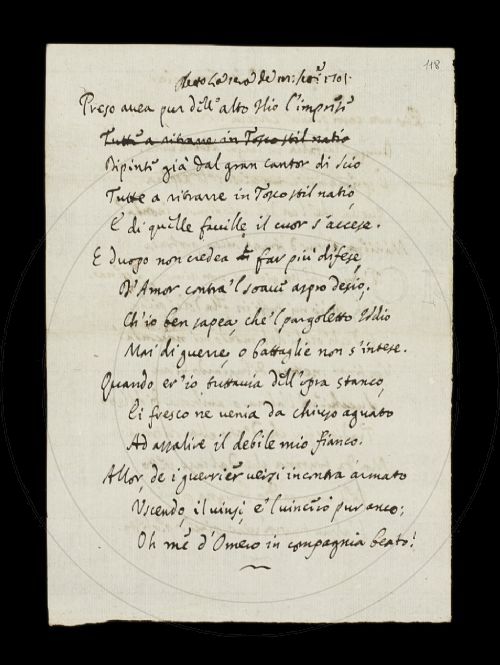 118
Letto la sera de' 1701.
Preso avea pur dell'alto Ilio l'imprese
Tutte a ritrarre in Tosco stil natio
Dipinte già dal gran cantor di Scio
Tutte a ritrarre in Tosco stil natio,
E di quelle faville il cuor s'accese.
E d'uopo non credea far più difese,
D'Amor contra 'l soave aspro desio;
Ch'io ben sapea, che 'l pargoletto Iddio
Mai di guerre, o battaglie non s'intese.
Quando er'io tuttavia dell'opra stanco,
Ei fresco ne venia da chiuso aguato
Ad assalire il debile mio fianco.
Allor de i guerrier versi incontra armato
Uscendo, il vinsi, e 'l vincerò pur anco;
Oh me d'Omero in compagnia beato!